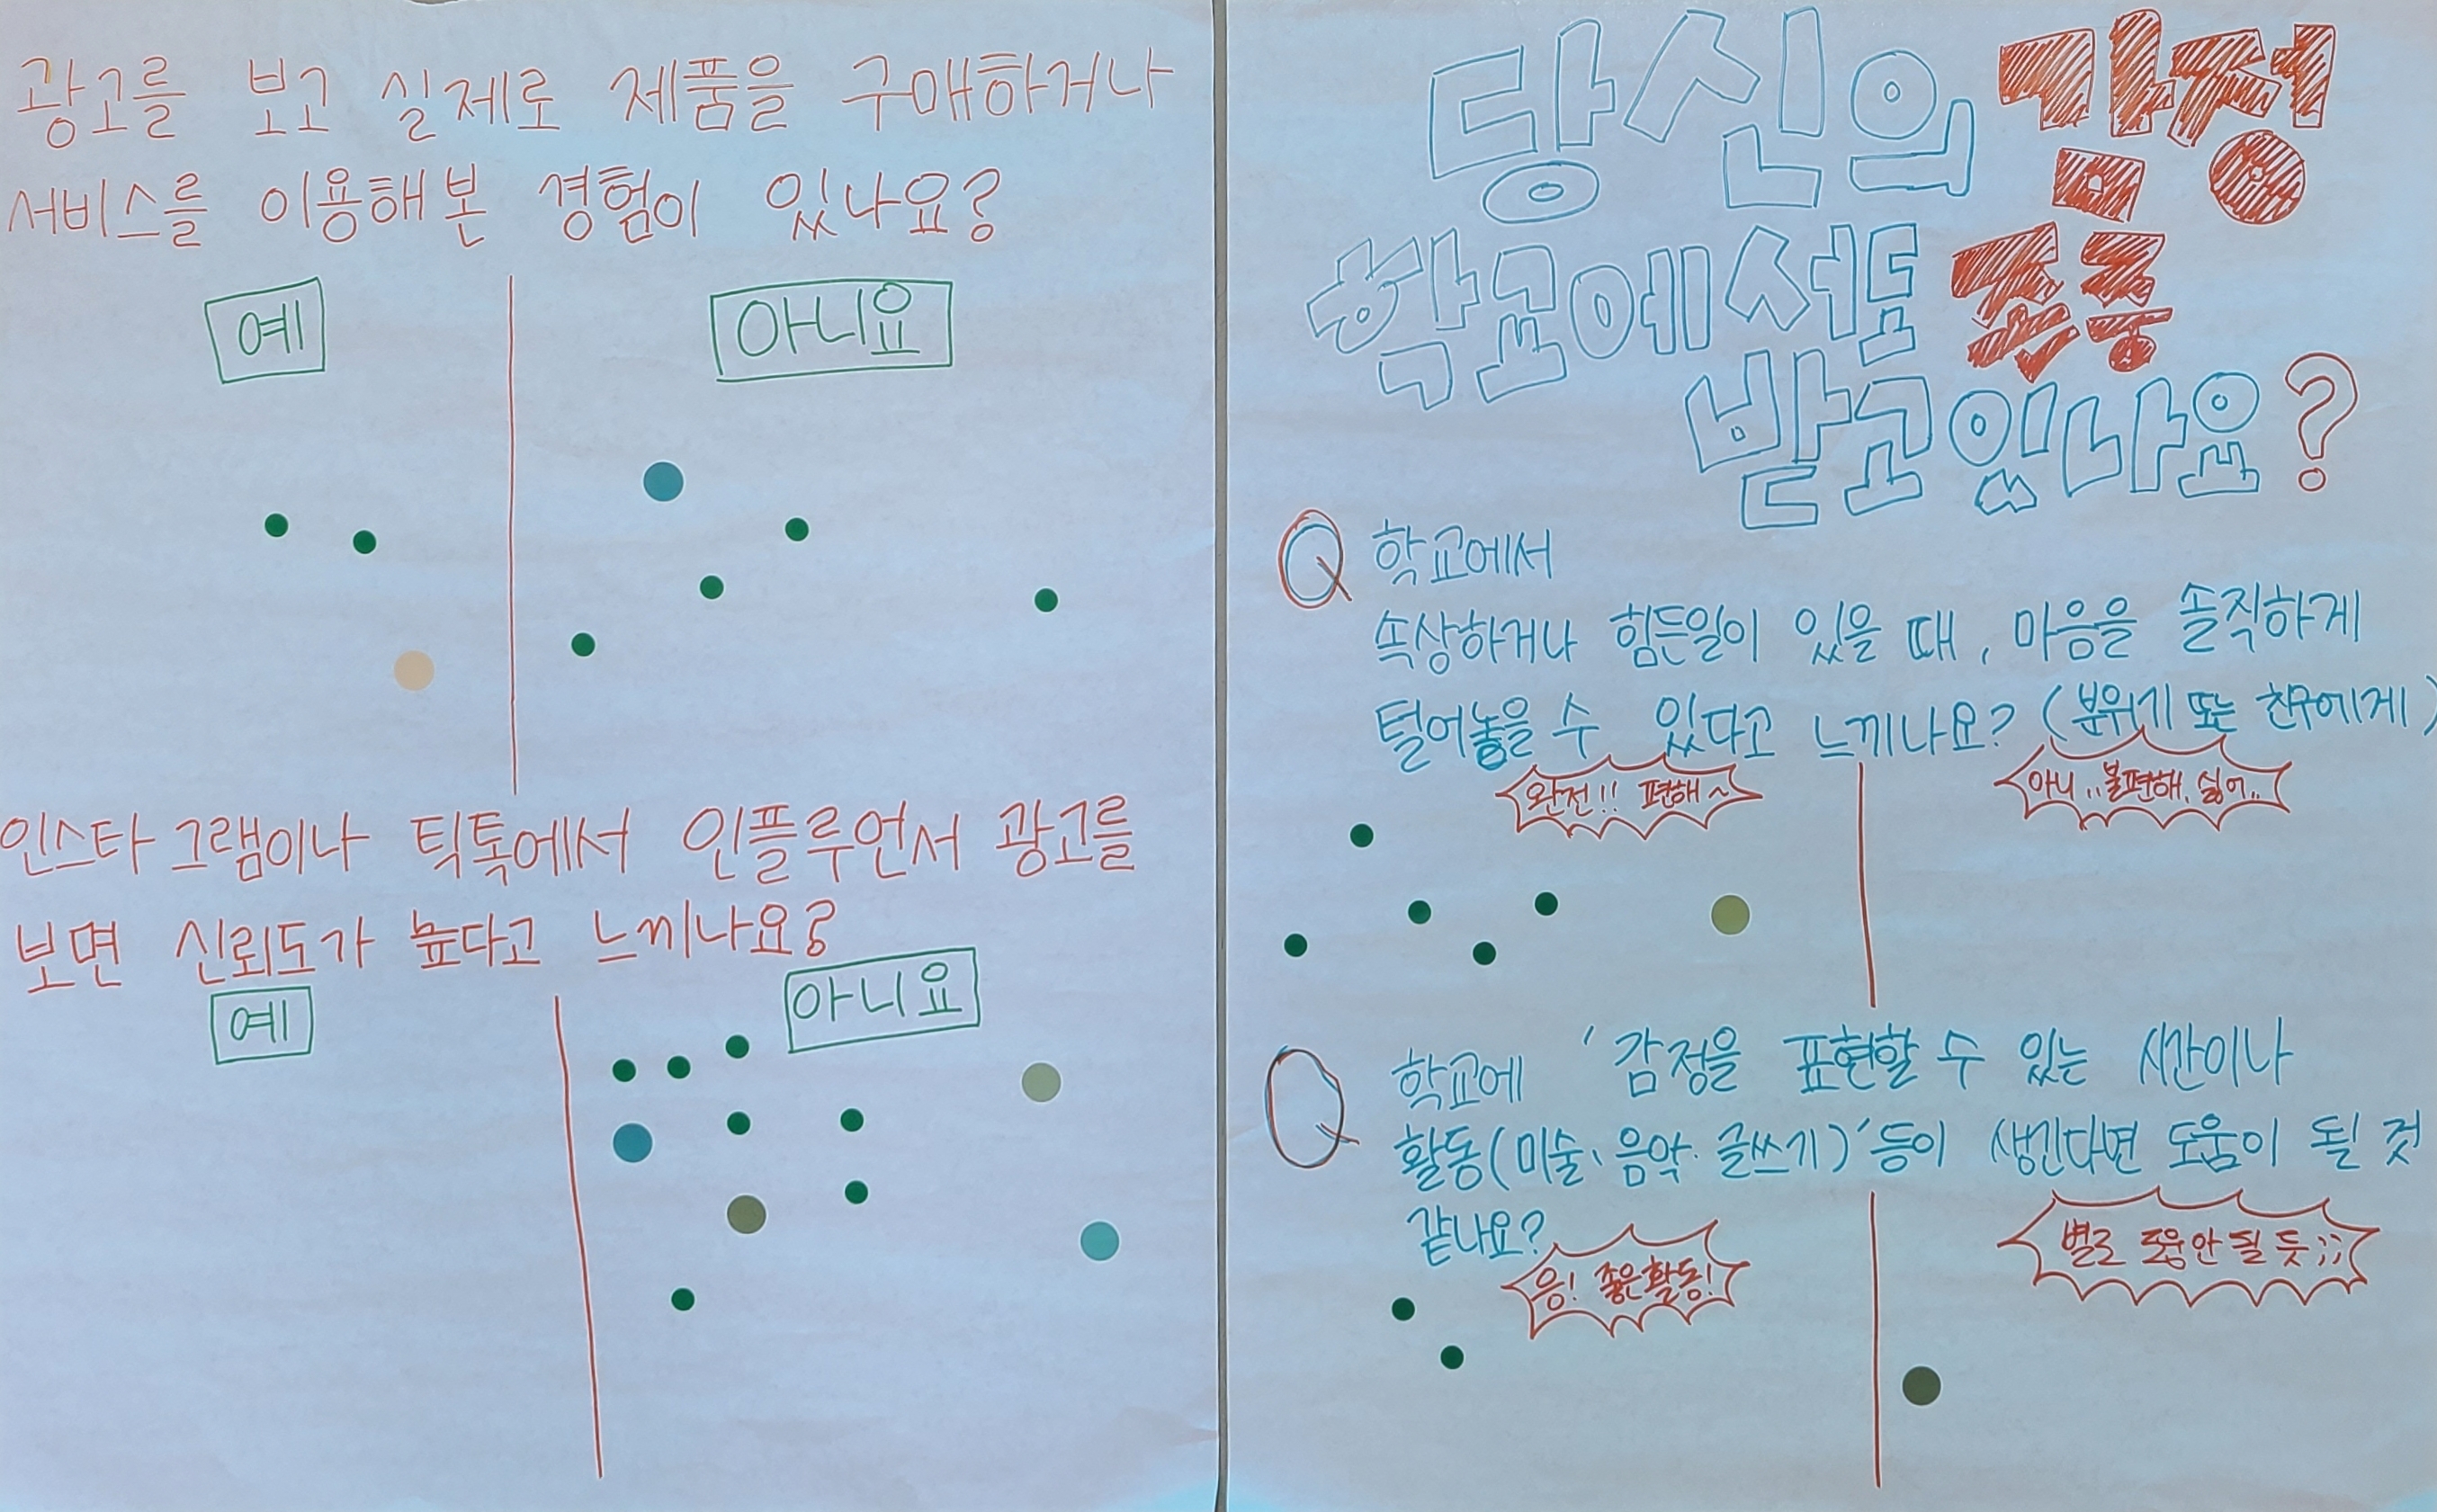 광고를 보고 실제로 제품을 구매하거나
서비스를 이용해본 경험이 있나요?
예
아니요
인스타그램이나 틱톡에서 인플루언서 광고를
보면 신뢰도가 높다고 느끼나요?
예
아니요
당신의 감정
학교에서도 존중
받고있나요?
Q 학교에서
속상하거나 힘든일이 있을 때, 마음을 솔직하게
털어놓을 수 있다고 느끼나요? (분위기 또는 친구에게)
완전!! 편해~
아니..불편해, 싫어..
Q 학교에 '감정을 표현할 수 있는 시간이나
활동(미술、음악·글쓰기)' 등이 생긴다면 도움이 될 것
같나요?
응! 좋은활동!
별로 도움안 될 듯;;